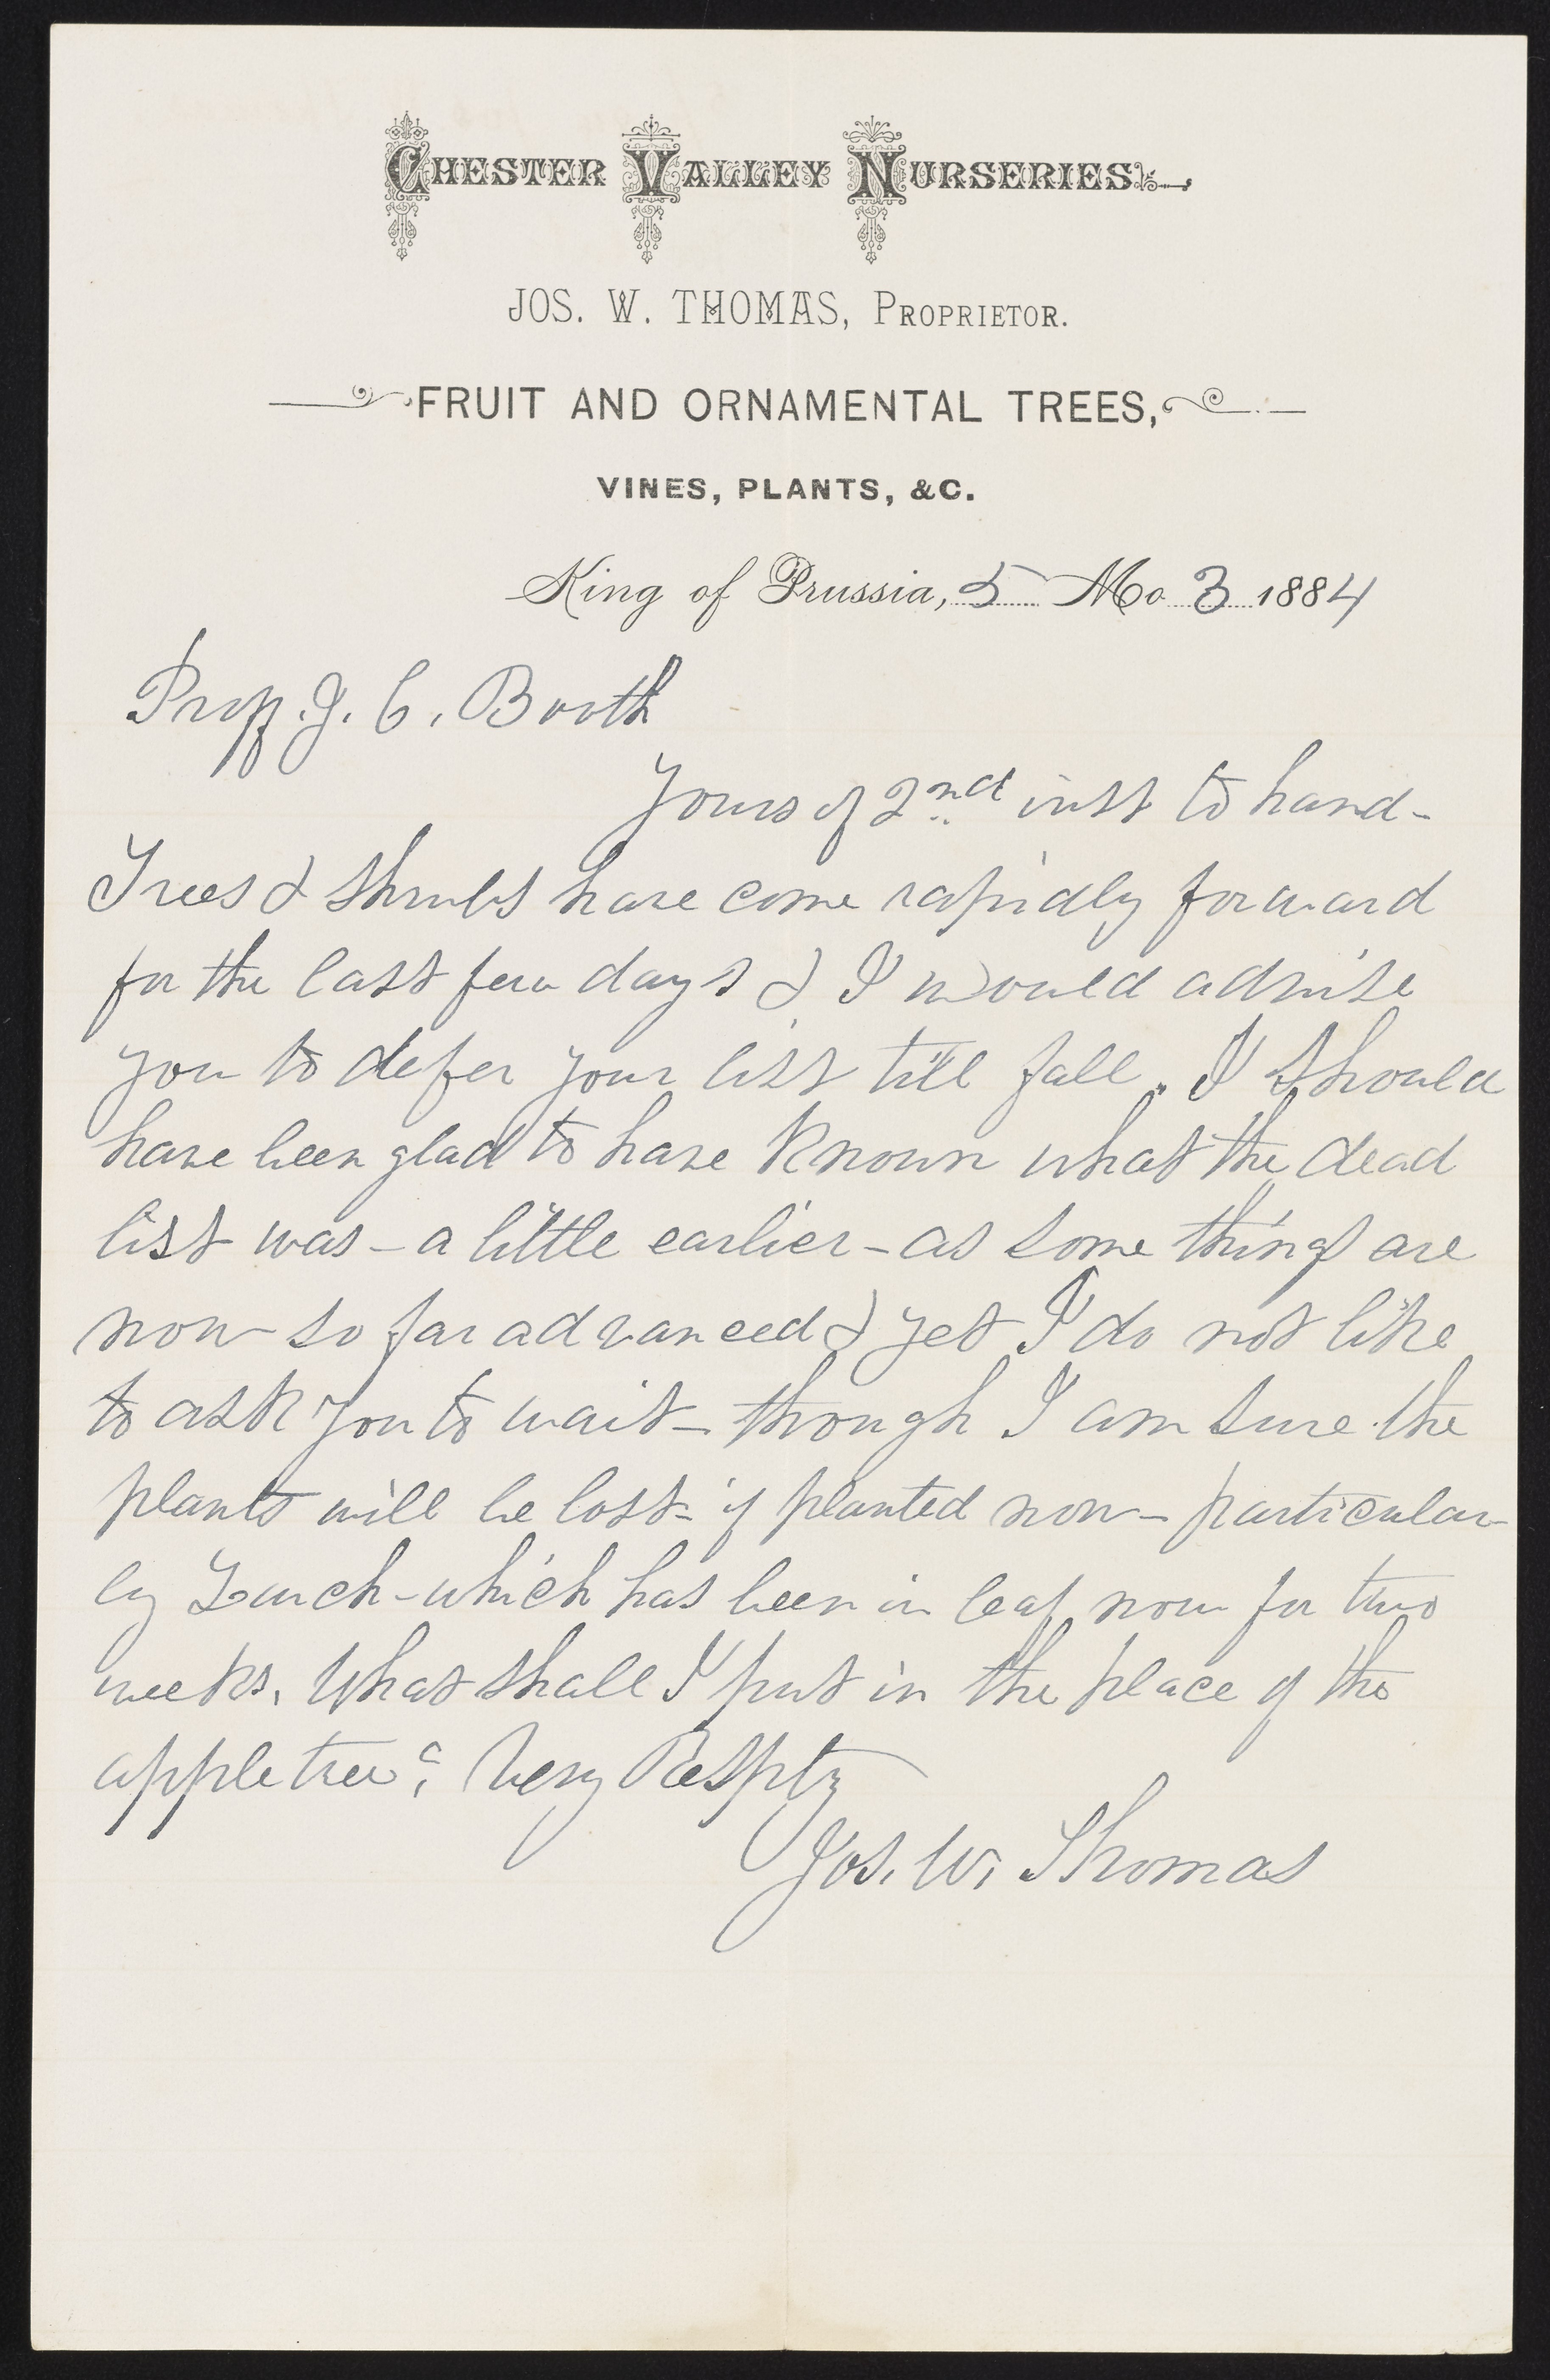 CHESTER VALLEY NURSERIES,
JOS. W. THOMAS, PROPRIETOR.
FRUIT AND ORNAMENTAL TREES,
VINES, PLANTS, &C.
King of Prussia, 5 Mo 3 1884
Prof. J. C. Booth
Yours of 2nd inst to hand-
Trees & shrubs have come rapidly forward
for the last few days & I would advise
you to defer your list till fall. I should
have been glad to have known what the dead
list was - a little earlier - as some things are
now so far advanced & yet I do not like
to ask you to wait - though I am sure the
plants will be lost - if planted now - particular-
ly Larch - which has been in leaf now for two
weeks. What shall I put in the place of the
apple tree? Very Respty
Jos. W. Thomas